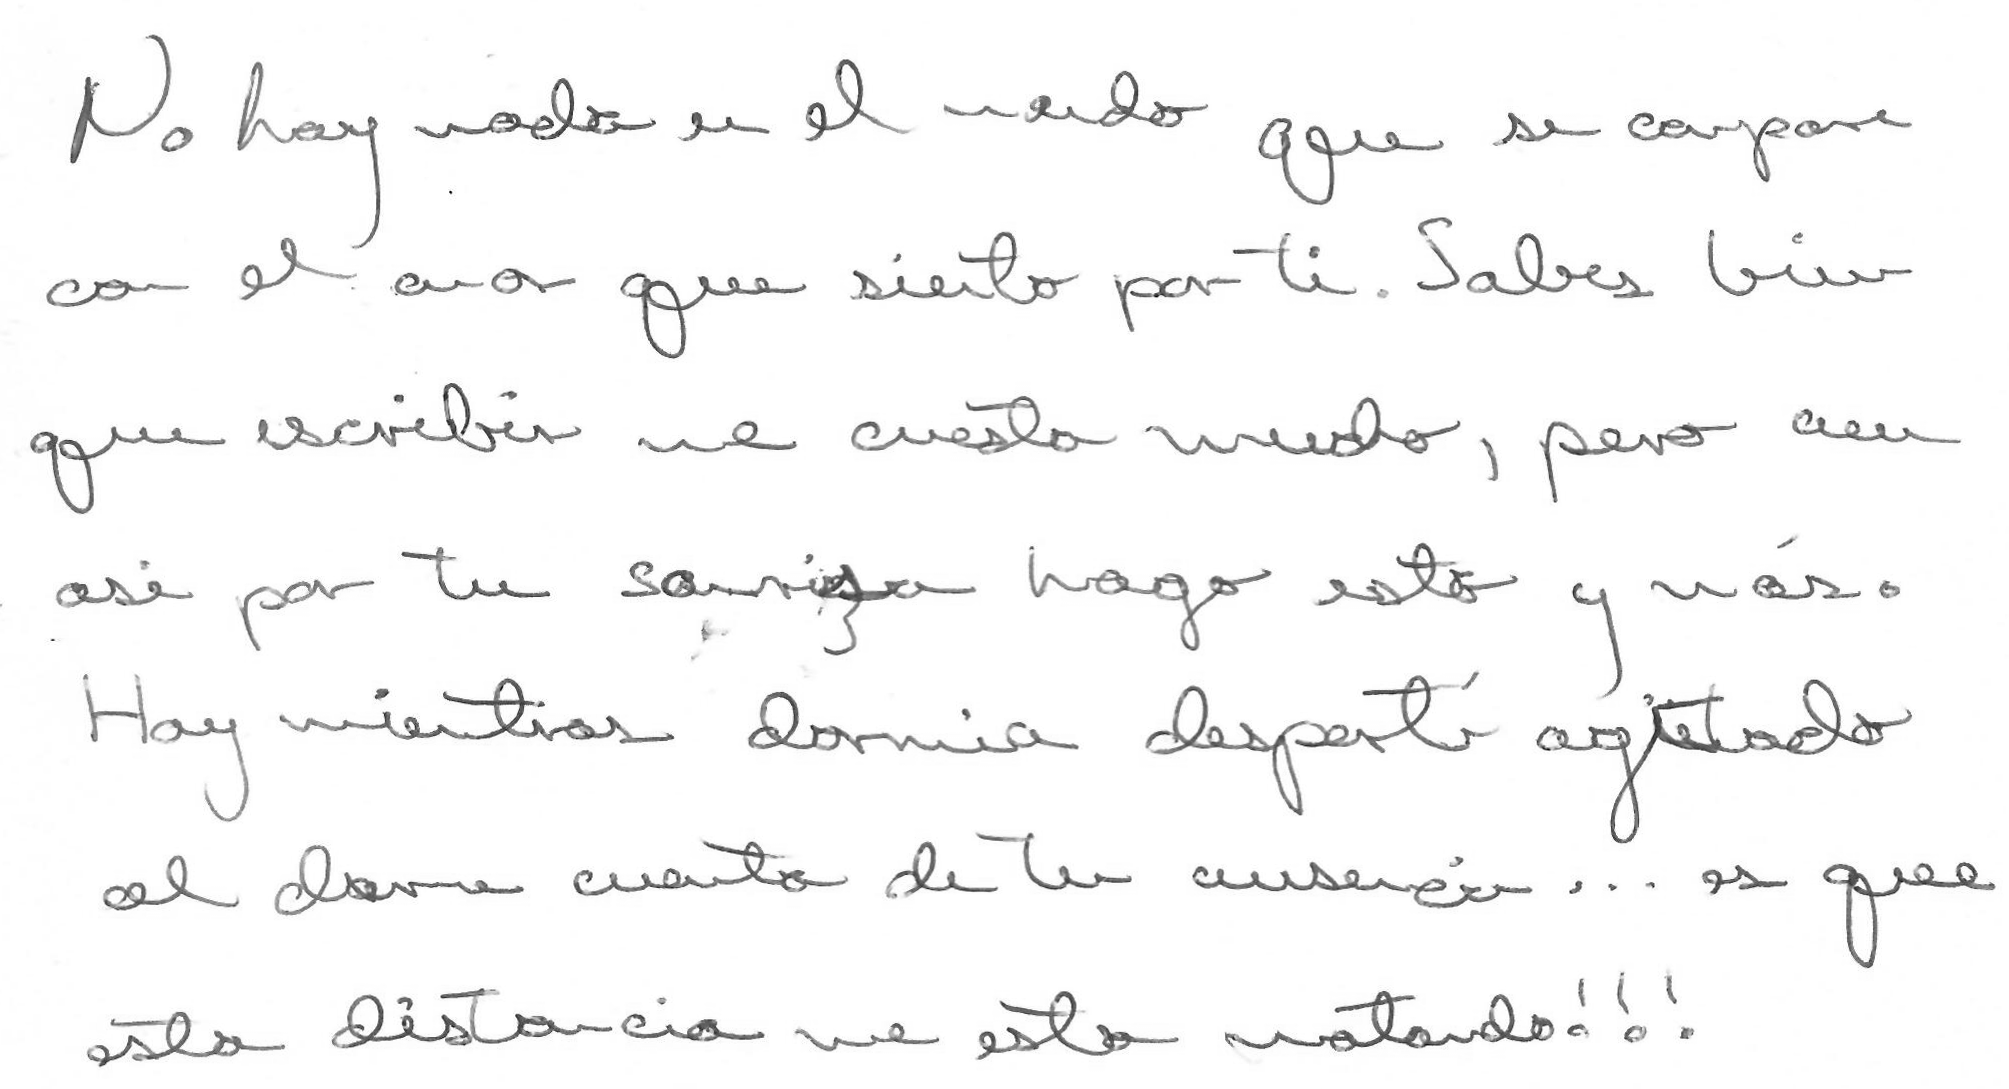 No hay nada en el mundo que se compare
con el amor que siento por ti. Sabes bien
que escribir me cuesta mucho, pero aun
asi por tu sonrisa hago esto y más.
Hoy mientras dormia desperté agitado
al darme cuenta de tu ausencia... es que
esta distancia me esta matando!!!